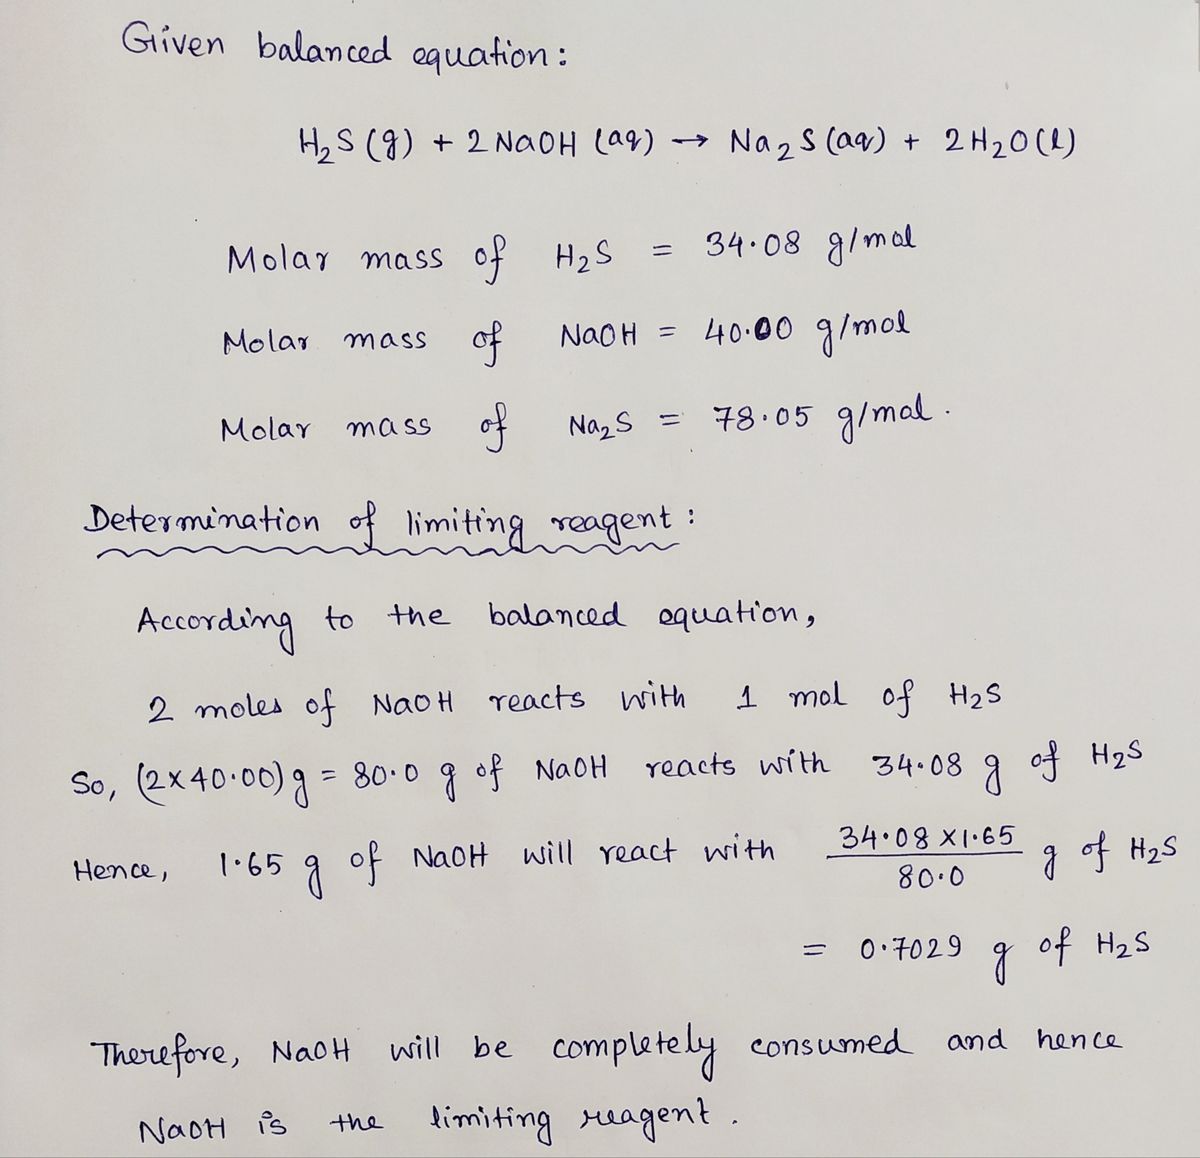 Given balanced equation :
H₂S (g) + 2 NaOH (aq) → Na₂S (aq) + 2 H₂O (l)
Molar mass of H₂S = 34.08 g/mol
Molar mass of NaOH = 40.00 g/mol
Molar mass of Na₂S = 78.05 g/mol.
Determination of limiting reagent :
According to the balanced equation,
2 moles of NaOH reacts with 1 mol of H₂S
So, (2×40.00) g = 80.0 g of NaOH reacts with 34.08 g of H₂S
Hence, 1.65 g of NaOH will react with 34.08 × 1.65 / 80.0 g of H₂S
= 0.7029 g of H₂S
Therefore, NaOH will be completely consumed and hence
NaOH is the limiting reagent.